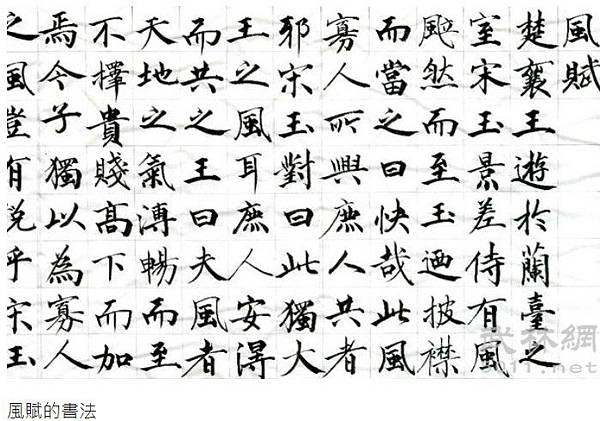 風賦
楚襄王遊於蘭臺之
室宋玉景差侍有風
颯然而至玉迺披襟
而當之曰快哉此風
寡人所與庶人共者
邪宋玉對曰此獨大
王之風耳庶人安得
而共之王曰夫風者
天地之氣溥暢而至
不擇貴賤高下而加
焉今子獨以為寡人
之風豈有說乎宋玉
林網
.net
風賦的書法